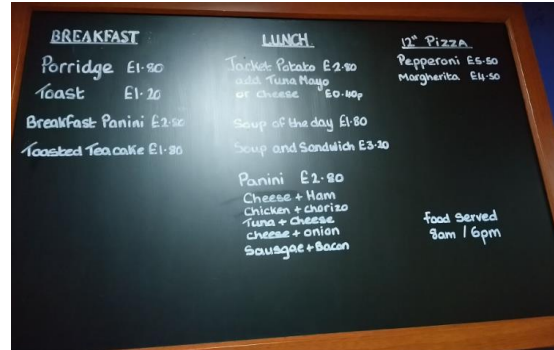 BREAKFAST
Porridge £1.80
Toast £1.20
Breakfast Panini £2.50
Toasted Teacake £1.80
LUNCH
Jacket Potato £2.80
add Tuna Mayo
or cheese £0.40p
Soup of the day £1.80
Soup and Sandwich £3.20
Panini £2.80
Cheese + Ham
Chicken + chorizo
Tuna + Cheese
cheese + onion
Sausgae + Bacon
12" Pizza
Pepperoni £5.50
Margherita £4.50
food Served
8am / 6pm